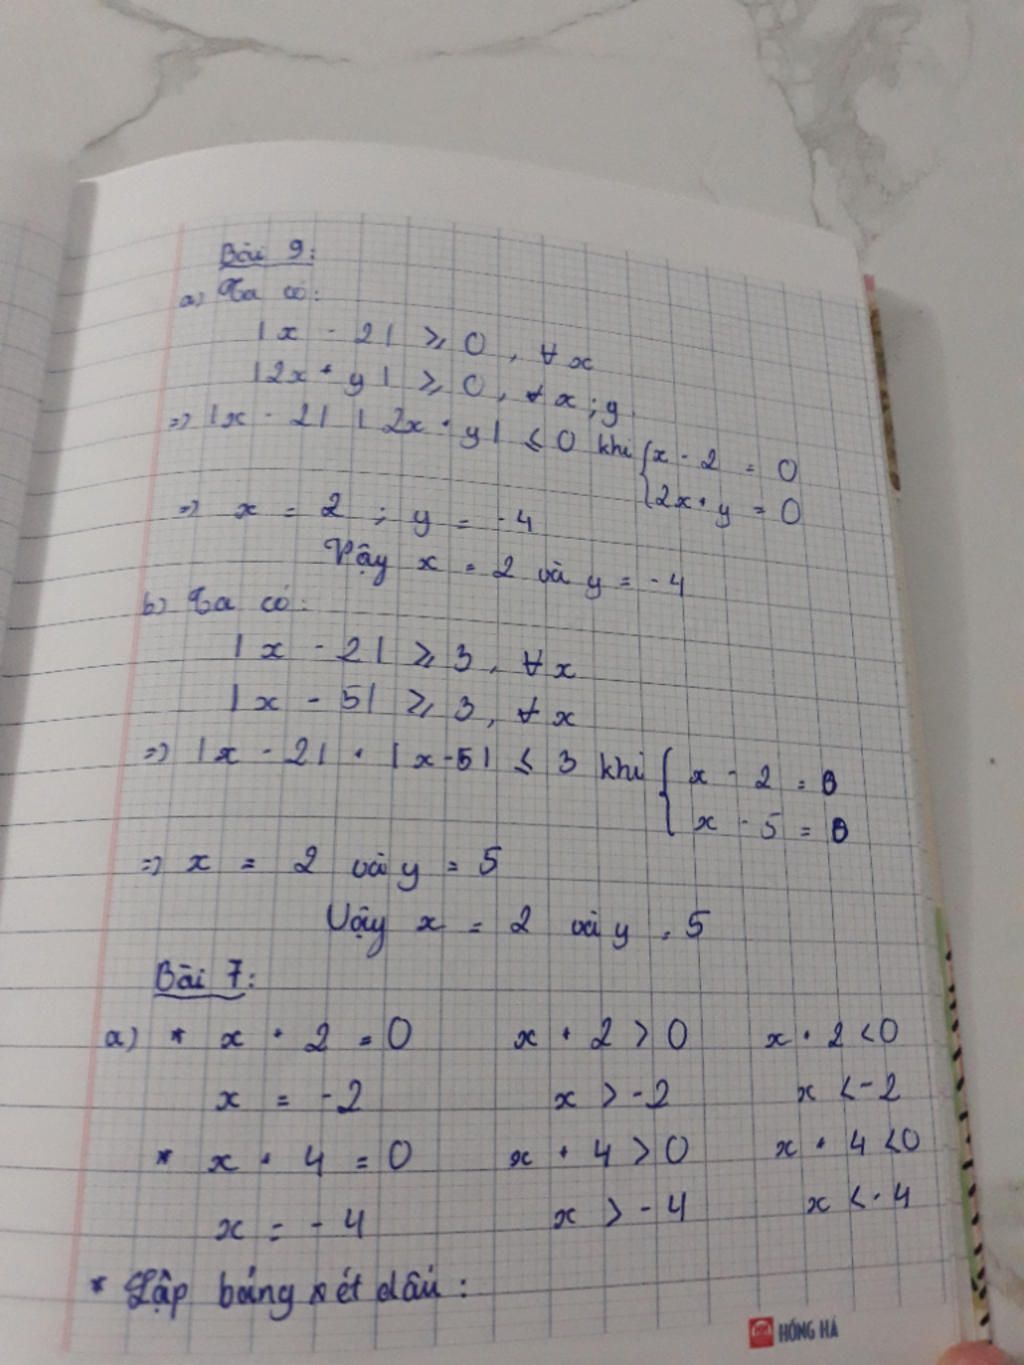 Bài 9:
a) Ta có:
|x - 2| ⩾ 0, ∀x
|2x + y| ⩾ 0, ∀x;y
=> |x - 2| + |2x + y| ⩽ 0 khi { x - 2 = 0
2x + y = 0
=> x = 2 ; y = -4
Vậy x = 2 và y = -4
b) Ta có:
|x - 2| ⩾ 3, ∀x
|x - 5| ⩾ 3, ∀x
=> |x - 2| + |x - 5| ⩽ 3 khi { x - 2 = 0
x - 5 = 0
=> x = 2 và y = 5
Vậy x = 2 và y = 5
Bài 7:
a) * x + 2 = 0 x + 2 > 0 x + 2 < 0
x = -2 x > -2 x < -2
* x + 4 = 0 x + 4 > 0 x + 4 < 0
x = -4 x > -4 x < -4
* Lập bảng xét dấu:
HỒNG HÀ